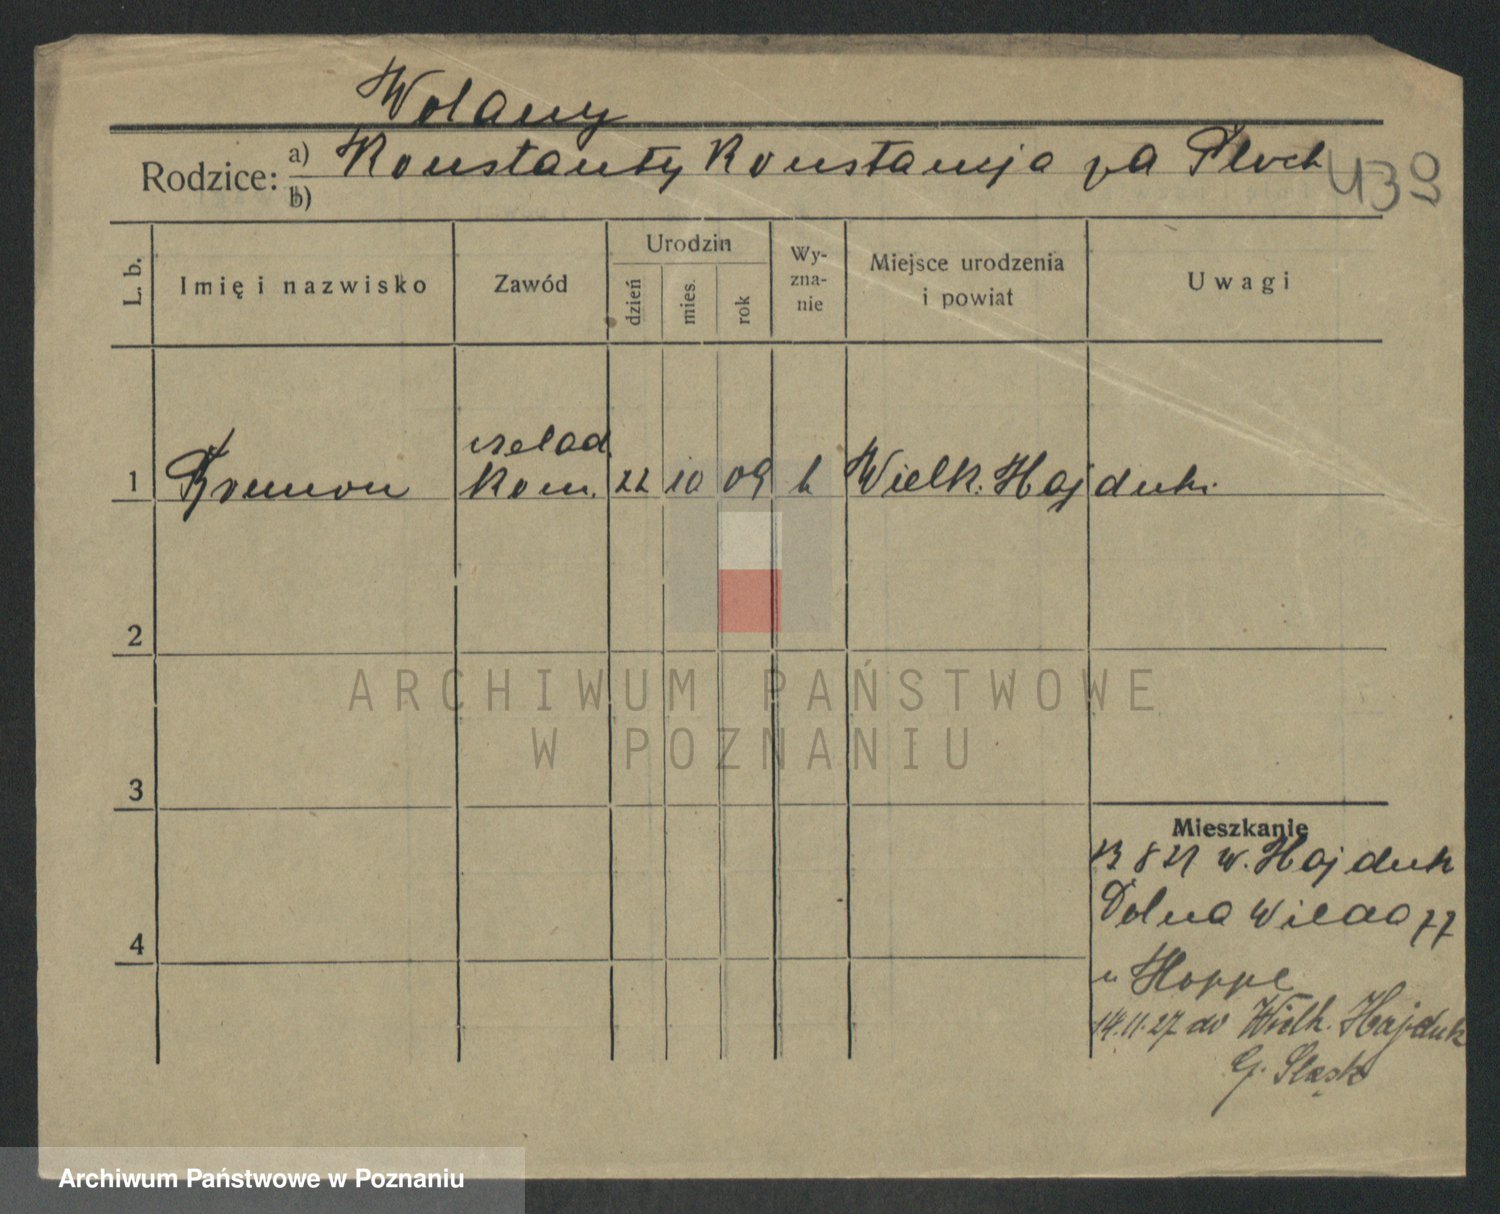 Wolany
Rodzice: a) Konstanty Konstancja za Ploch
b)
439
L. b.
Imię i nazwisko
Zawód
Urodzin
dzień
mies.
rok
Wy-
zna-
nie
Miejsce urodzenia
i powiat
Uwagi
czelad.
1 kom. 22 10 09 k Wielk. Hajduki
2
3
4
Mieszkanie
13 8 27 w. Hajduk
Dolna Wilda 77
u Hoppe
14.11.27 do Wielk. Hajduk
G. Śląsk
ARCHIWUM PAŃSTWOWE
W POZNANIU
Archiwum Państwowe w Poznaniu